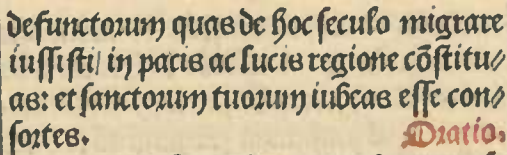 defunctorum quas de hoc seculo migrare
iussisti/ in pacis ac lucis regione cōstitu//
as: et sanctorum tuorum iubeas esse con//
sortes. Oratio.